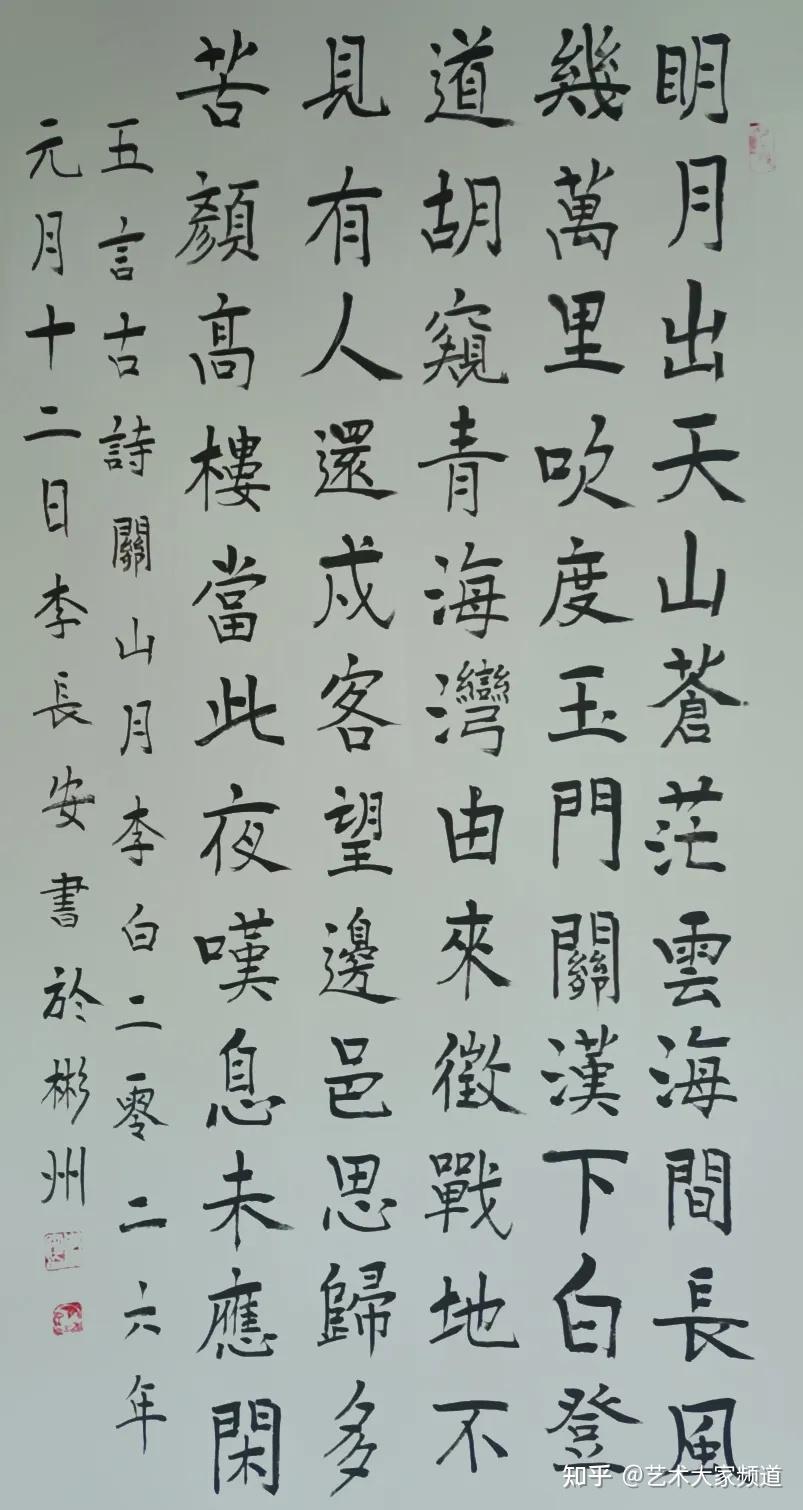 明月出天山蒼茫雲海間長風
幾萬里吹度玉門關漢下白登
道胡窺青海灣由來徵戰地不
見有人還戍客望邊邑思歸多
苦顏高樓當此夜嘆息未應閑
五言古詩關山月李白二零二六年
元月十二日李長安書於彬州
知乎 @艺术大家频道